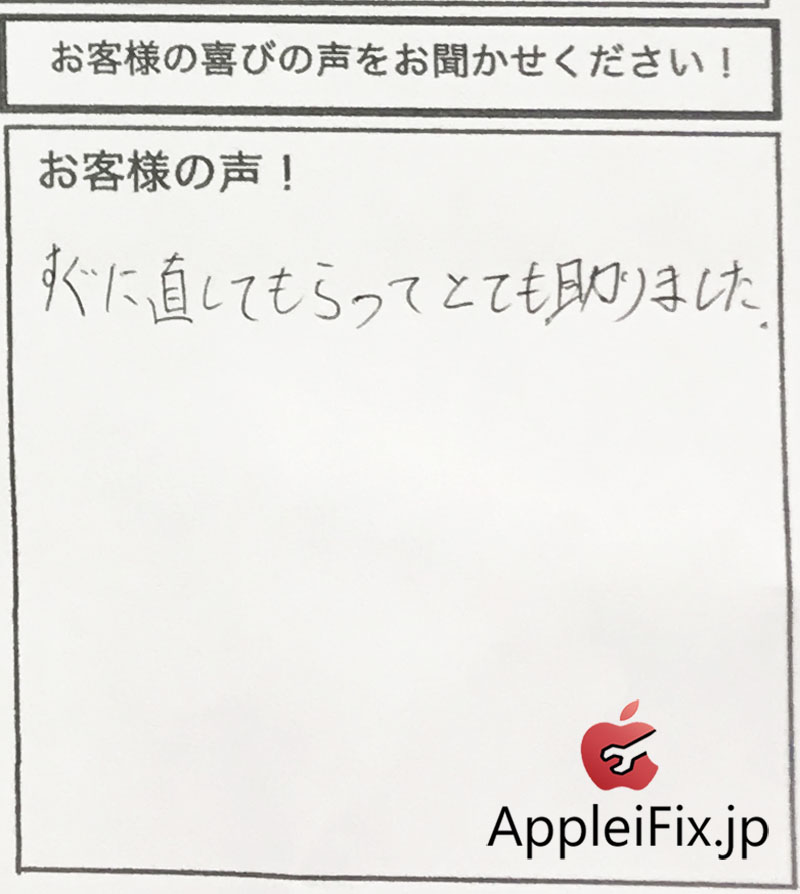 お客様の喜びの声をお聞かせください！
お客様の声！
すぐに直してもらってとても助りました.
AppleiFix.jp